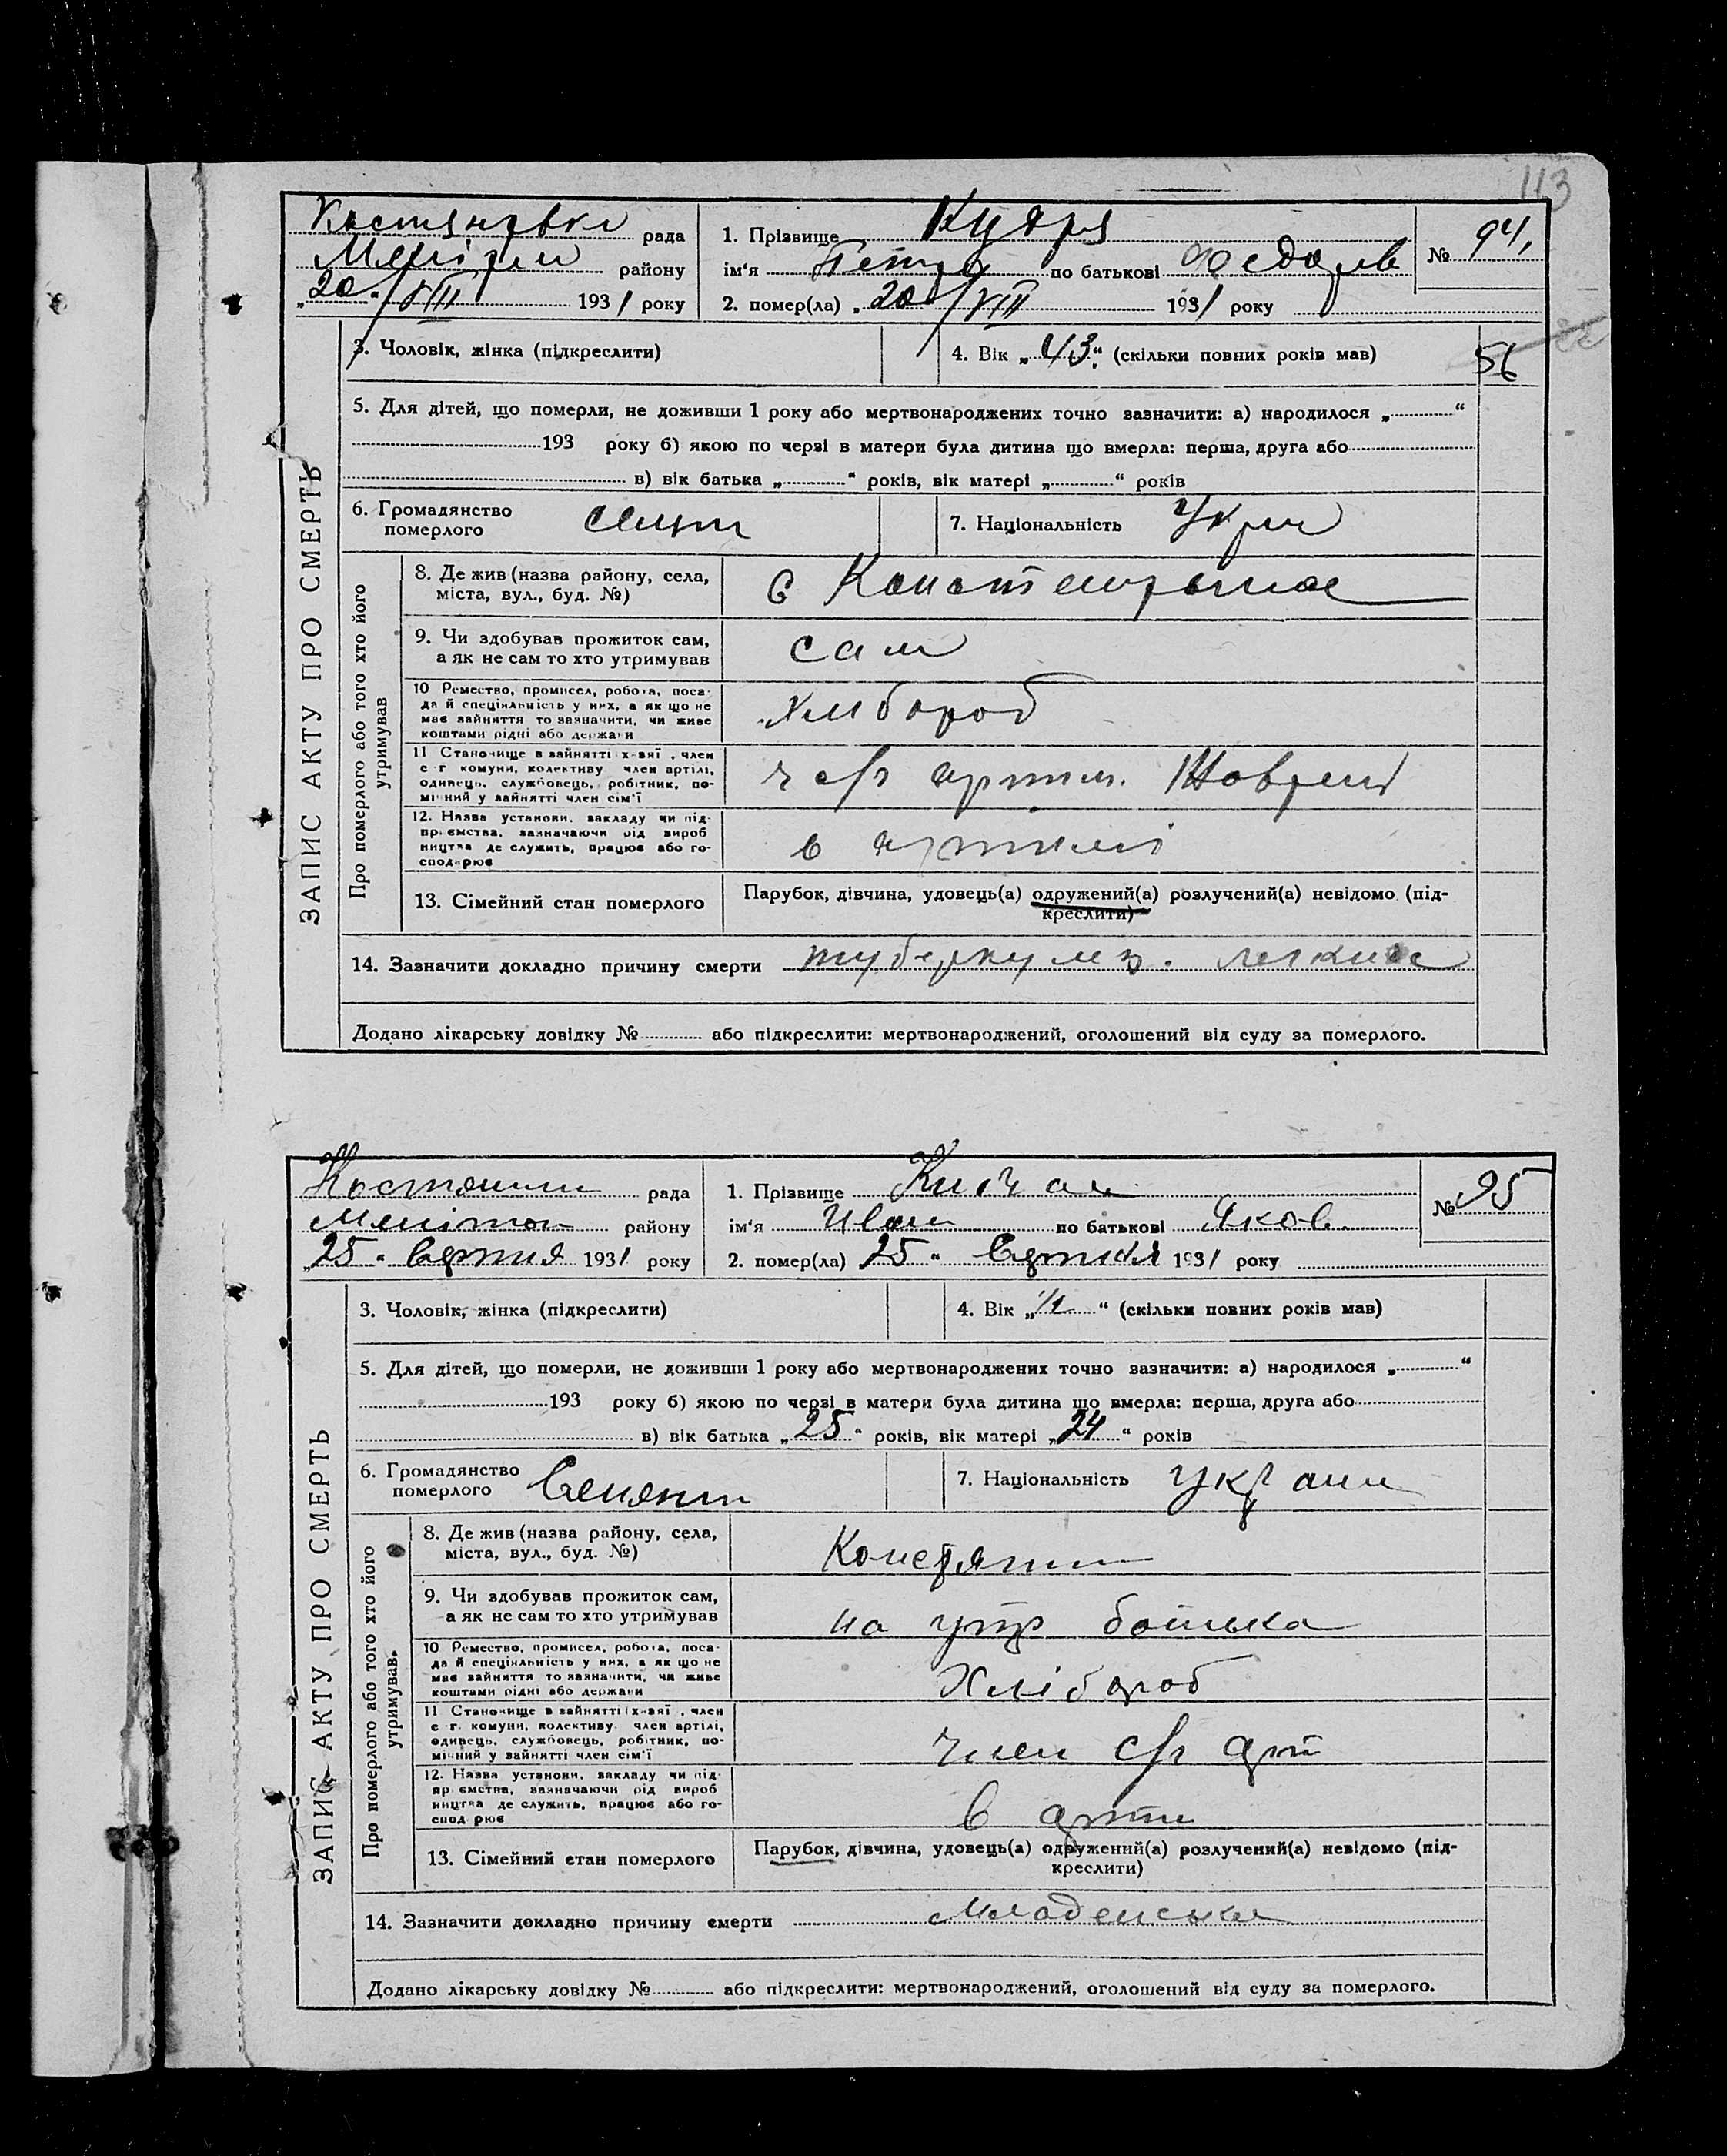 113
рада
1. Прізвище Кудря
№ 94,
району
ім'я Петро по батькові Федоров
„20" VIII 1931 року
2. помер(ла) „20" VIII 1931 року
3. Чоловік, жінка (підкреслити)
4. Вік „43" (скільки повних років мав)
56
5. Для дітей, що померли, не доживши 1 року або мертвонароджених точно зазначити: а) народилося „ "
193 року б) якою по черзі в матери була дитина що вмерла: перша, друга або
в) вік батька „ " років, вік матері „ " років
6. Громадянство
померлого
7. Національність Укра
ЗАПИС АКТУ ПРО СМЕРТЬ
Про померлого або того хто його
утримував
8. Де жив (назва району, села,
міста, вул., буд. №)
с
9. Чи здобував прожиток сам,
а як не сам то хто утримував
сам
10 Ремество, промисел, робота, поса-
да й спеціяльність у них, а як що не
має зайняття то зазначити, чи живе
коштами рідні або держави
хлибороб
11 Становище в зайнятті х-зяї , член
с г. комуни, колективу член артілі,
одинець, службовець, робітник, по-
мічний у зайнятті член сім'ї
ч с/г артил. Жовтень
12. Назва установи, закладу чи під-
приємства, зазначаючи рід вироб
ництва де служить, працює або го-
сподарює
в артилі
13. Сімейний стан померлого
Парубок, дівчина, удовець(а) одружений(а) розлучений(а) невідомо (під-
креслити)
14. Зазначити докладно причину смерти туберкульоз. легких
Додано лікарську довідку № або підкреслити: мертвонароджений, оголошений від суду за померлого.
рада
1. Прізвище
№ 95
Мелітоп району
ім'я Иван по батькові Яков.
„25" Серпня 1931 року
2. помер(ла) 25" Серпня 1931 року
3. Чоловік, жінка (підкреслити)
4. Вік „1/2" (скільки повних років мав)
5. Для дітей, що померли, не доживши 1 року або мертвонароджених точно зазначити: а) народилося „ "
193 року б) якою по черзі в матери була дитина що вмерла: перша, друга або
в) вік батька „25" років, вік матері „24" років
6. Громадянство
померлого
7. Національність Украин
ЗАПИС АКТУ ПРО СМЕРТЬ
Про померлого або того хто його
утримував.
8. Де жив (назва району, села,
міста, вул., буд. №)
Констян
9. Чи здобував прожиток сам,
а як не сам то хто утримував
на утр батька
10 Ремество, промисел, робота, поса-
да й спеціяльність у них, а як що не
має зайняття то зазначити, чи живе
коштами рідні або держави
Хлібороб
11 Становище в зайнятті х-зяї , член
с г. комуни, колективу член артілі,
одинець, службовець, робітник, по-
мічний у зайнятті член сім'ї
член с/г арт
12. Назва установи, закладу чи під-
приємства, зазначаючи рід вироб
ництва де служить, працює або го-
сподарює
в арти
13. Сімейний стан померлого
Парубок, дівчина, удовець(а) одружений(а) розлучений(а) невідомо (під-
креслити)
14. Зазначити докладно причину смерти Младенська
Додано лікарську довідку № або підкреслити: мертвонароджений, оголошений від суду за померлого.